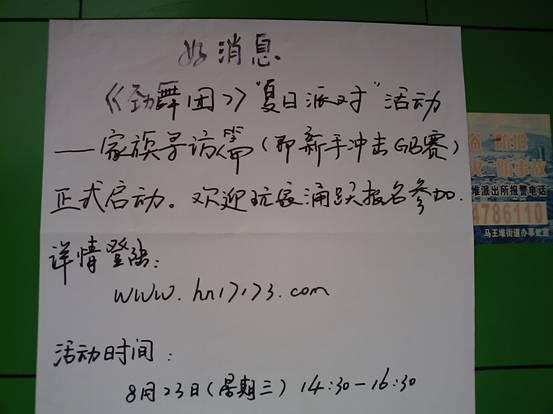 好消息
《劲舞团》"夏日派对"活动
——家族寻访篇(即新手冲击GB赛)
正式启动。欢迎玩家涌跃报名参加.
详情登陆:
www.hn17173.com
活动时间:
8月23日(星期三) 14:30-16:30
堆派出所报警电话
4786110
马王堆街道办事处宣